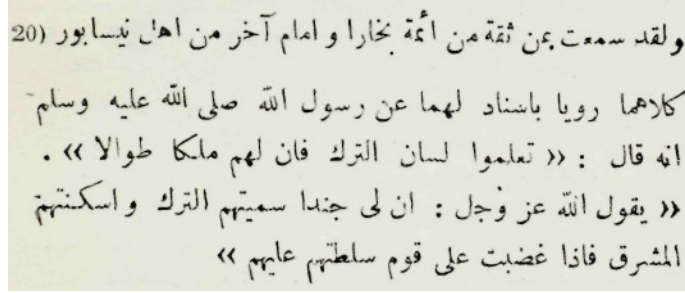 ولقد سمعت عن ثقة من أئمة بخارا و امام آخر من اهل نيسابور (20
كلاهما رويا باسناد لهما عن رسول الله صلى الله عليه وسلم
انه قال : «تعلموا لسان الترك فان لهم ملكا طوالا» .
«يقول الله عز وجل : ان لى جندا سميتهم الترك واسكنتهم
المشرق فاذا غضبت على قوم سلطتهم عليهم»